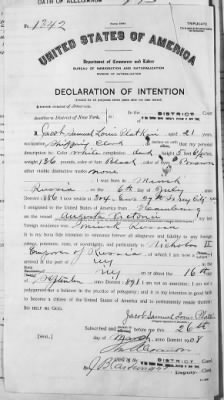 OATH OF ALLEGIANCE
No. 1242
TRIPLICATE
UNITED STATES OF AMERICA
Department of Commerce and Labor
BUREAU OF IMMIGRATION AND NATURALIZATION
DIVISION OF NATURALIZATION
DECLARATION OF INTENTION
DISTRICT
Southern District of New York,
I, Jacob Samuel Louis Plotkin, aged 21 years,
occupation Shipping Clerk, do declare on oath that my personal
description is: Color White, complexion dark, height 5 feet inches,
weight 136 pounds, color of hair Black, color of eyes Brown
other visible distinctive marks none
I was born in Minsk
Russia, on the 6th day of July, anno
Domini 1886; I now reside at
I emigrated to the United States of America from Hamburg
on the vessel Augusta Victoria; my last
foreign residence was Minsk Russia
It is my bona fide intention to renounce forever all allegiance and fidelity to any foreign
prince, potentate, state, or sovereignty, and particularly to Nicholas II
Emperor of Russia, of which I am now a subject
arrived at the port of NY, in the
of NY on or about the 16th day
of September, anno Domini 1891; I am not an anarchist; I am not a
polygamist nor a believer in the practice of polygamy; and it is my intention in good faith
to become a citizen of the United States of America and to permanently reside therein:
SO HELP ME GOD.
Jacob Samuel Louis Plotkin
Subscribed and sworn to before me this 26th
day of March, anno Domini 1908
DISTRICT